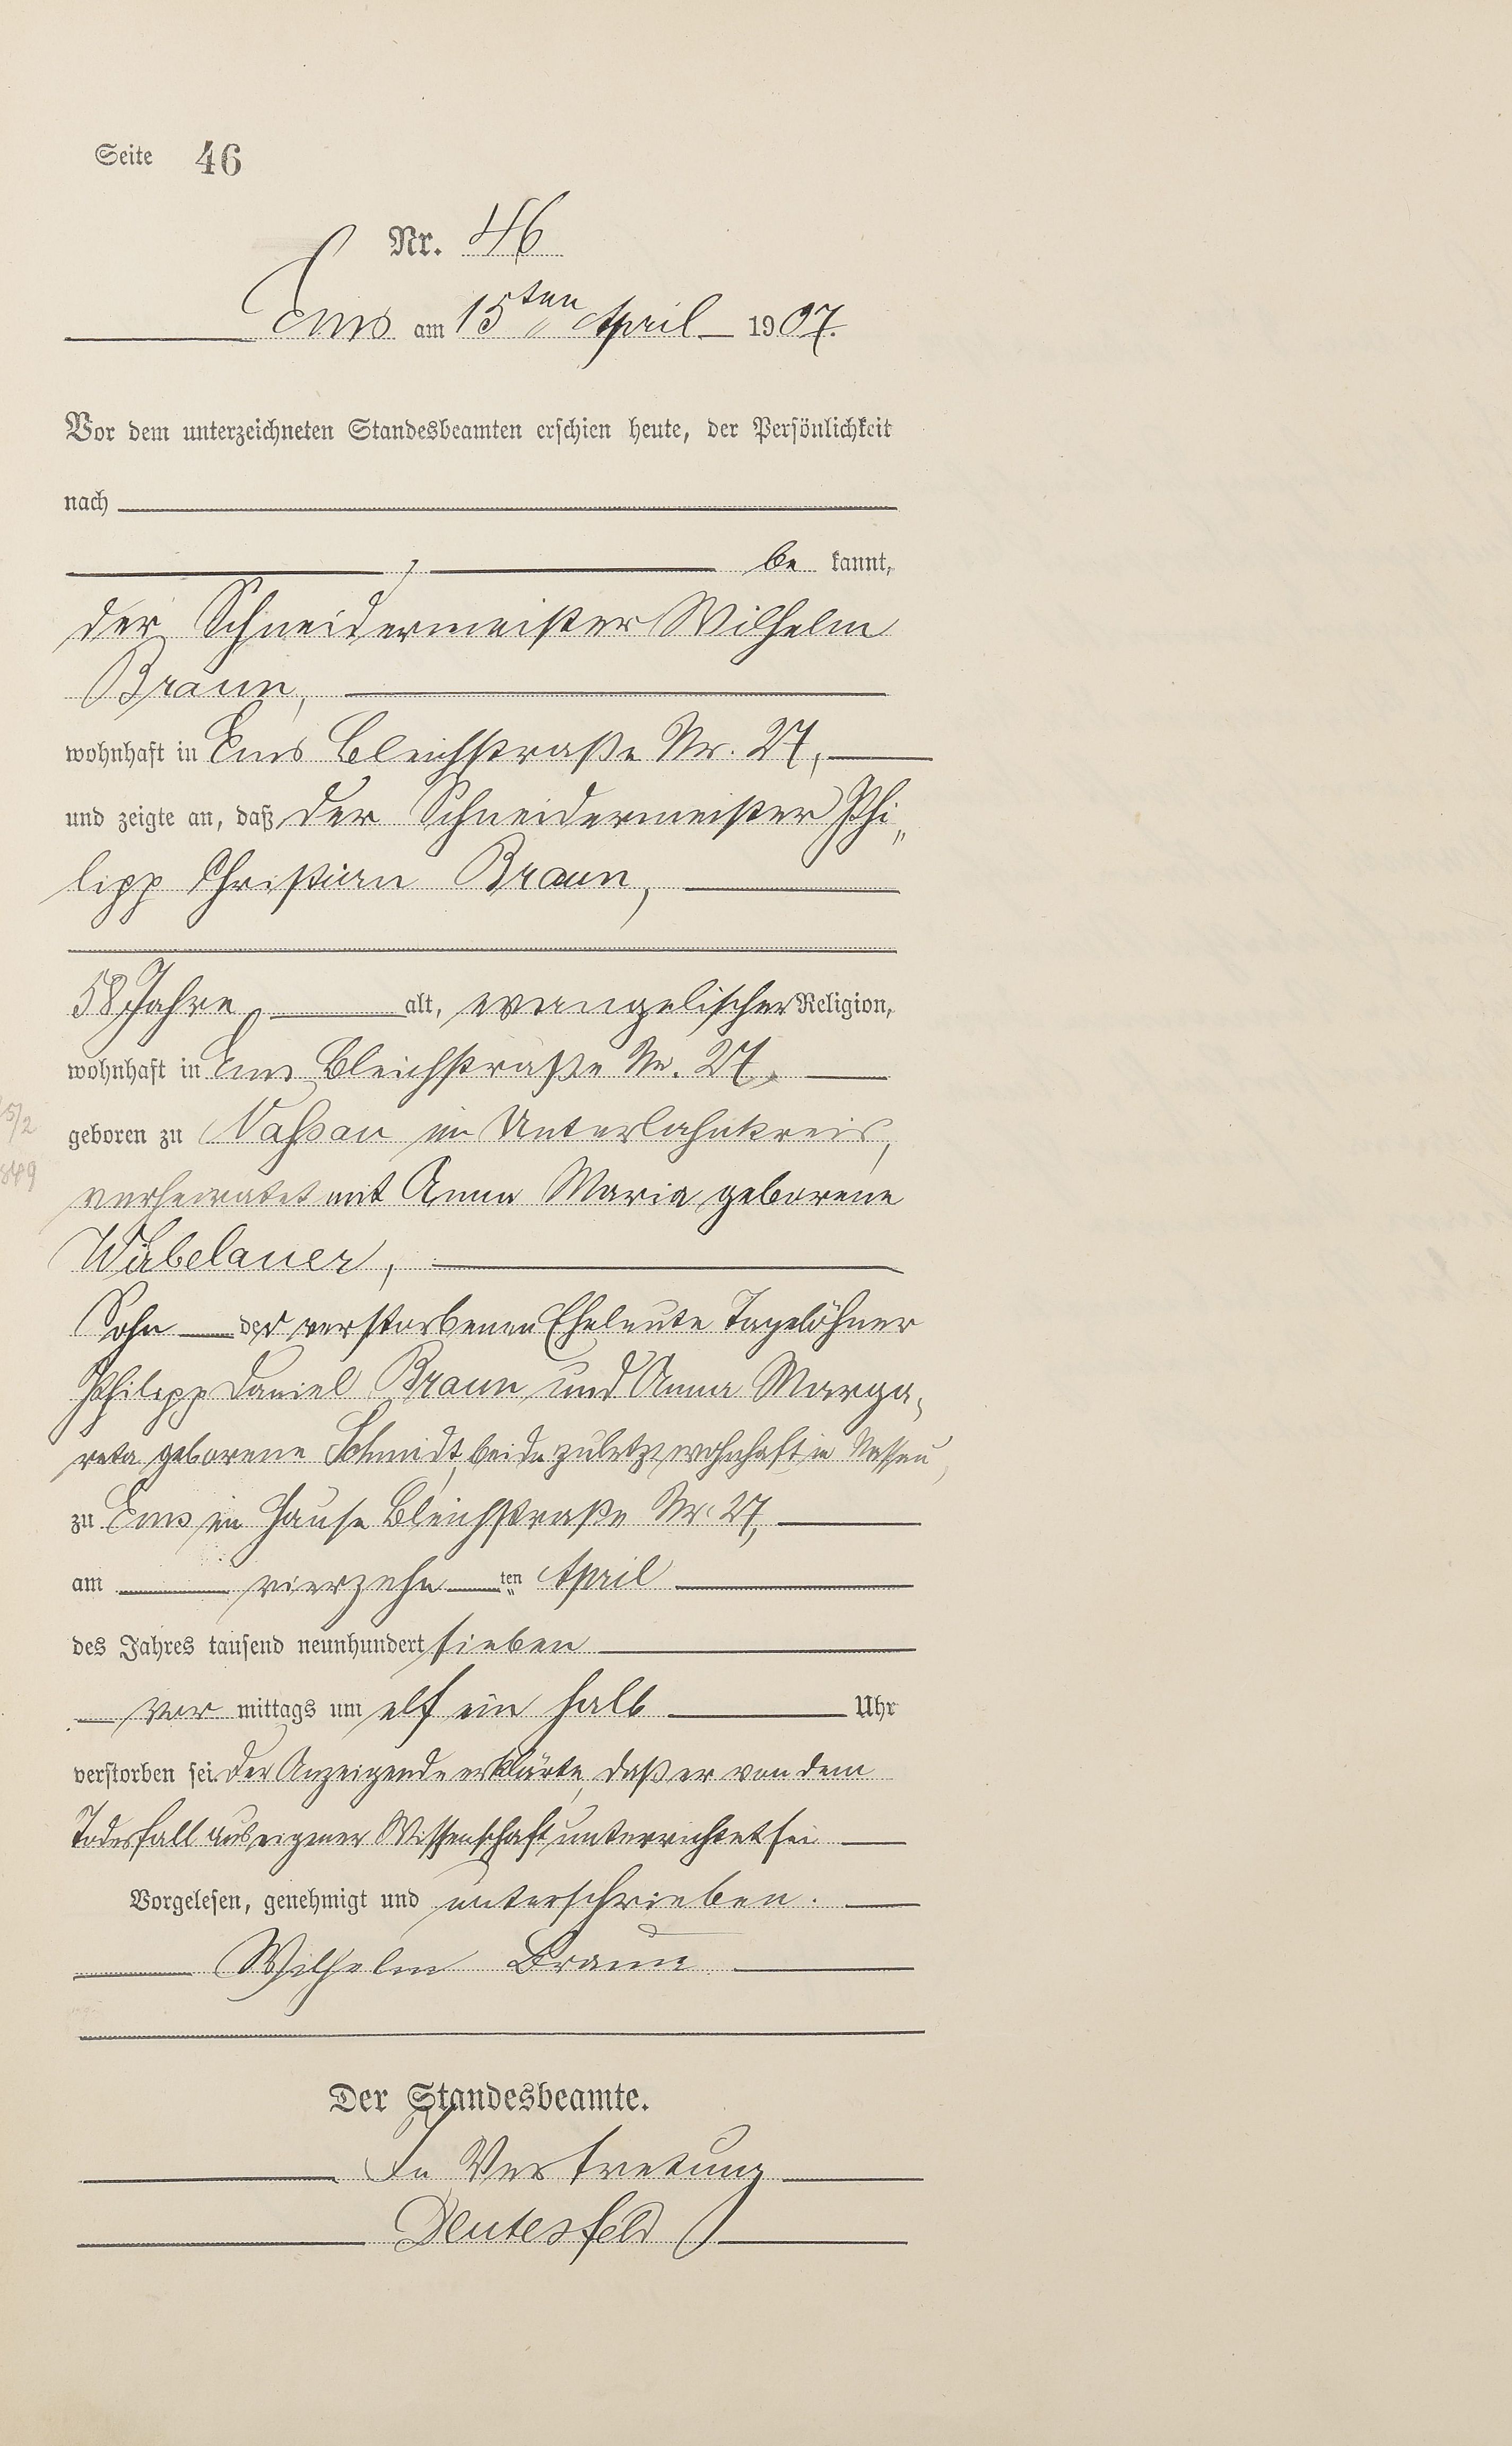 Seite 46
Nr. 46
Ems am 15ten April 1907.
Vor dem unterzeichneten Standesbeamten erschien heute, der Persönlichkeit
nach
be kannt,
der Schneidermeister Wilhelm
Braun,
wohnhaft in Ems Bleichstraße Nr. 27,
und zeigte an, daß der Schneidermeister Phi„
lipp Christian Braun,
58 Jahre alt, evangelischer Religion,
wohnhaft in Ems Bleichstraße Nr. 27,
geboren zu Naßau im Unterlahnkreis,
verheiratet mit Anna Maria geborene
Wäbelauer,
Sohn der verstorbenen Eheleute Tagelöhner
Philipp Daniel Braun und Anna Marga„
reta geborene Schmidt, beide zuletzt wohnhaft in Nassau,
zu Ems im Hause Bleichstraße Nr. 27,
am vierzehn ten April
des Jahres tausend neunhundert sieben
vor mittags um elf ein halb Uhr
verstorben sei. Der Anzeigende erklärte, daß er von dem
Todesfall aus eigener Wissenschaft unterrichtet sei
Vorgelesen, genehmigt und unterschrieben.
Wilhelm Braun
Der Standesbeamte.
In Vertretung
Deutesfeld